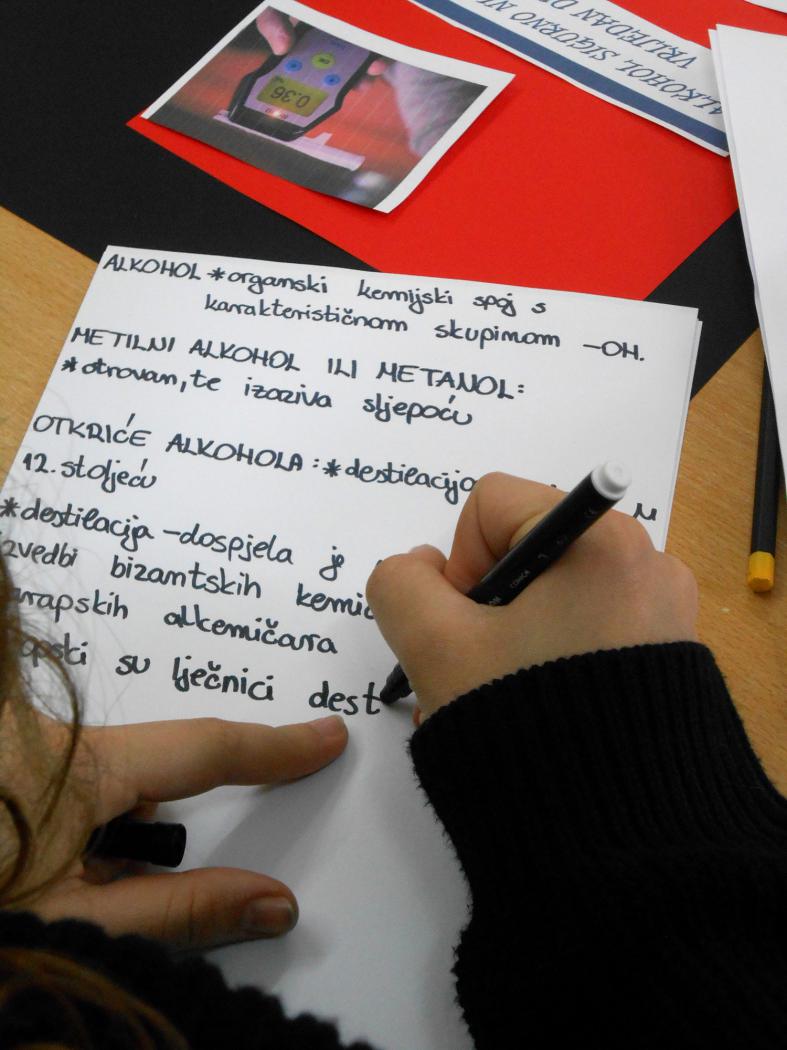 ALKOHOL SIGURNO
VRIJEDAN
0.36
ALKOHOL *organski kemijski spoj s
karakterističnom skupinom -OH.
METILNI ALKOHOL ILI METANOL:
*otrovan, te izaziva sljepoću
OTKRIĆE ALKOHOLA: *destilacija u
12. stoljeću
*destilacija -dospjela je
zvedbi bizantskih kemič
arapskih alkemičara
apski su lječnici dest